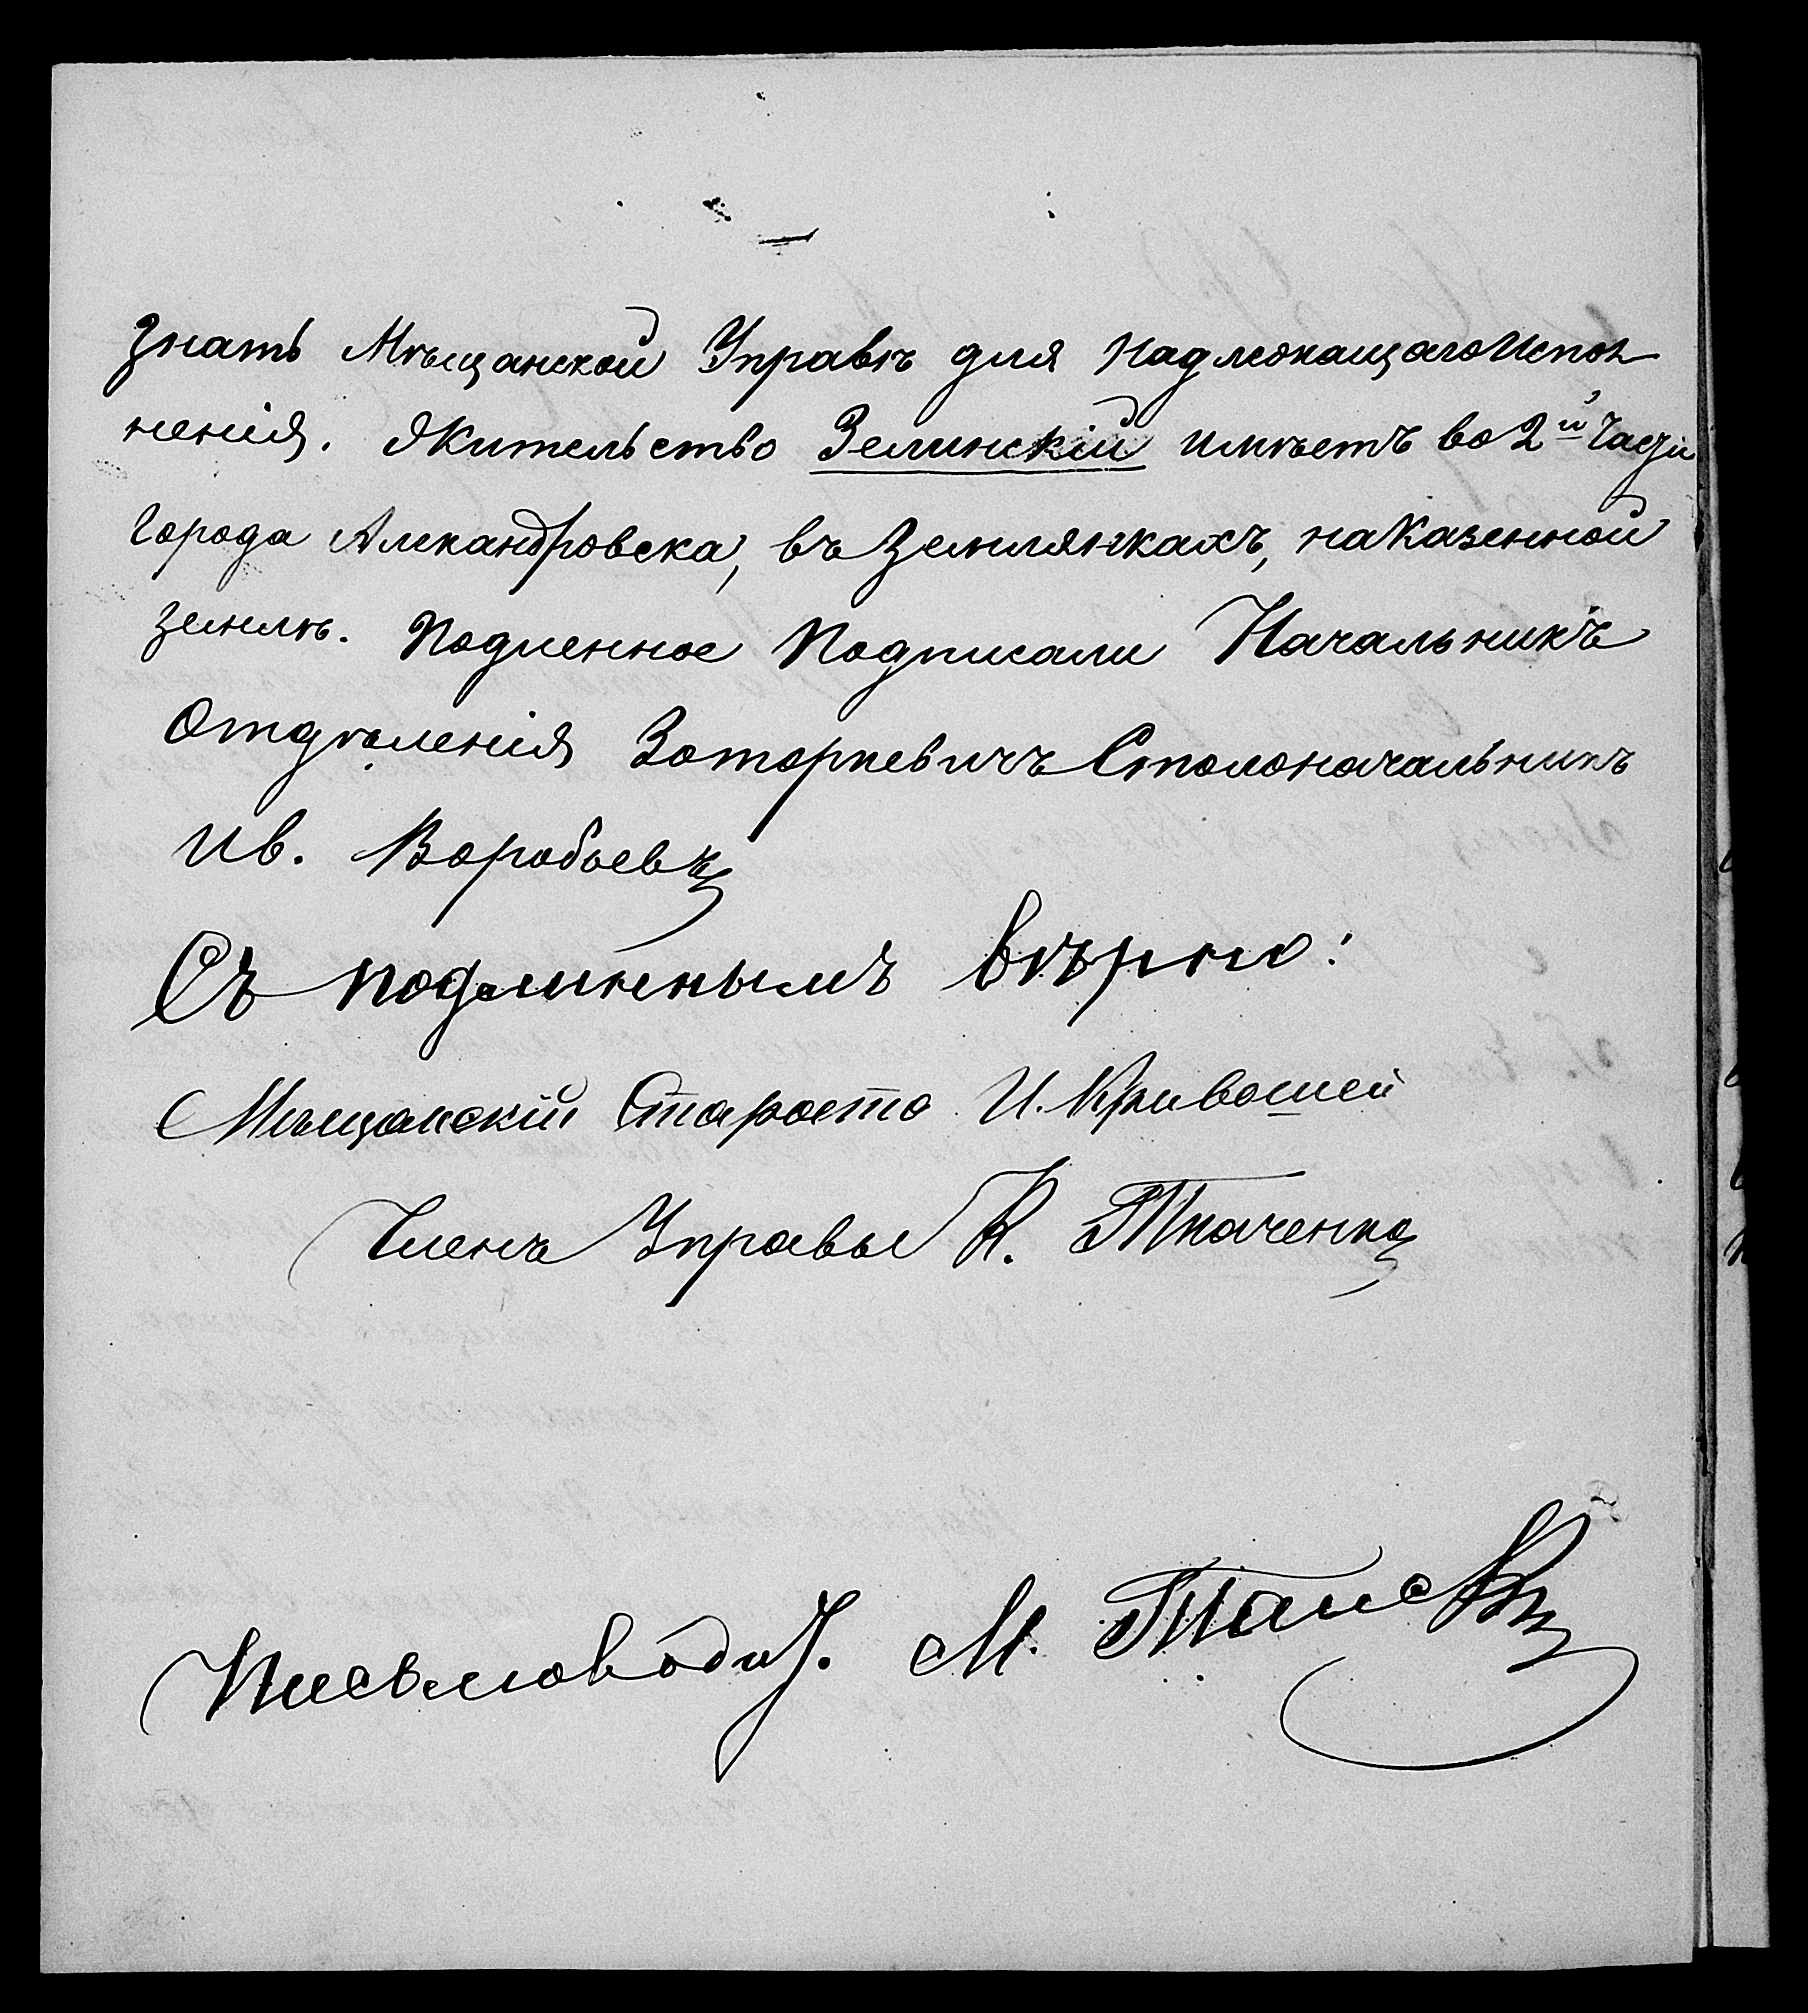 знать Мѣщанской Управѣ для надлежащаго испол-
ненія. Жительство Зелинскій имѣетъ во 2й части
города Алекандровска, въ землянкахъ, на казенной
землѣ. Подленное подписали Начальникъ
Отдѣленія Заторкевичъ Столоначальникъ
Ив. Воробьевъ
Съ подлиннымъ вѣрно:
Мѣщанскій Староста И. Кривошей
Членъ Управы К. Ткаченко
Письмоводит. М.